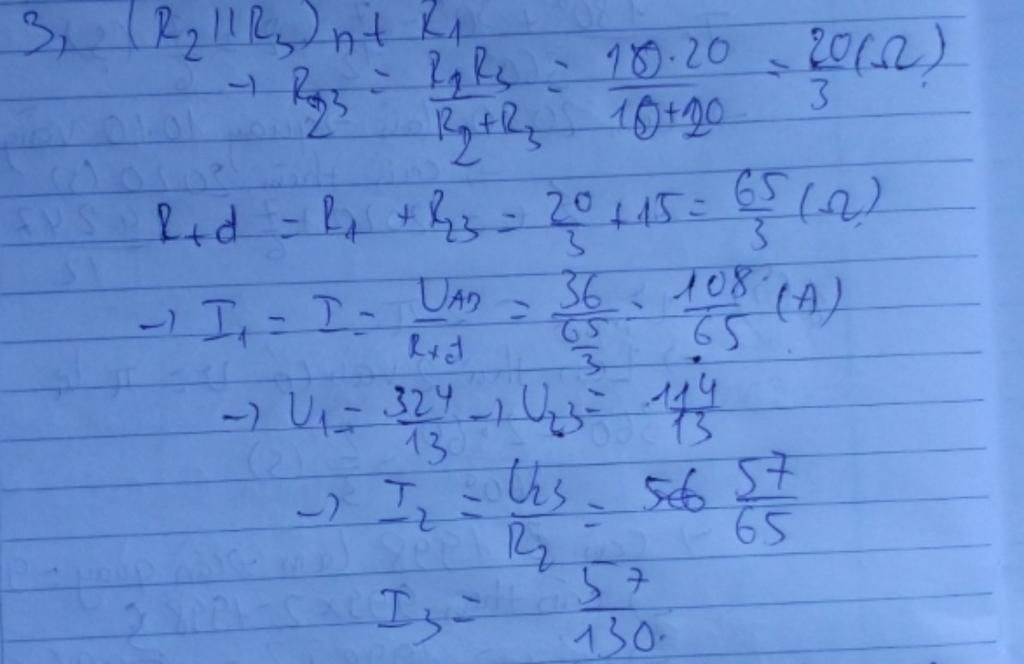 3, (R₂ || R₃) nt R₁
→ R₂₃ = R₂R₃/(R₂+R₃) = 10.20/(10+20) = 20/3 (Ω)
Rtd = R₁ + R₂₃ = 20/3 + 15 = 65/3 (Ω)
→ I₁ = I = U_AB/Rtd = 36/(65/3) = 108/65 (A)
→ U₁ = 324/13 → U₂₃ = 114/13
→ I₂ = U₂₃/R₂ = 57/65
I₃ = 57/130.